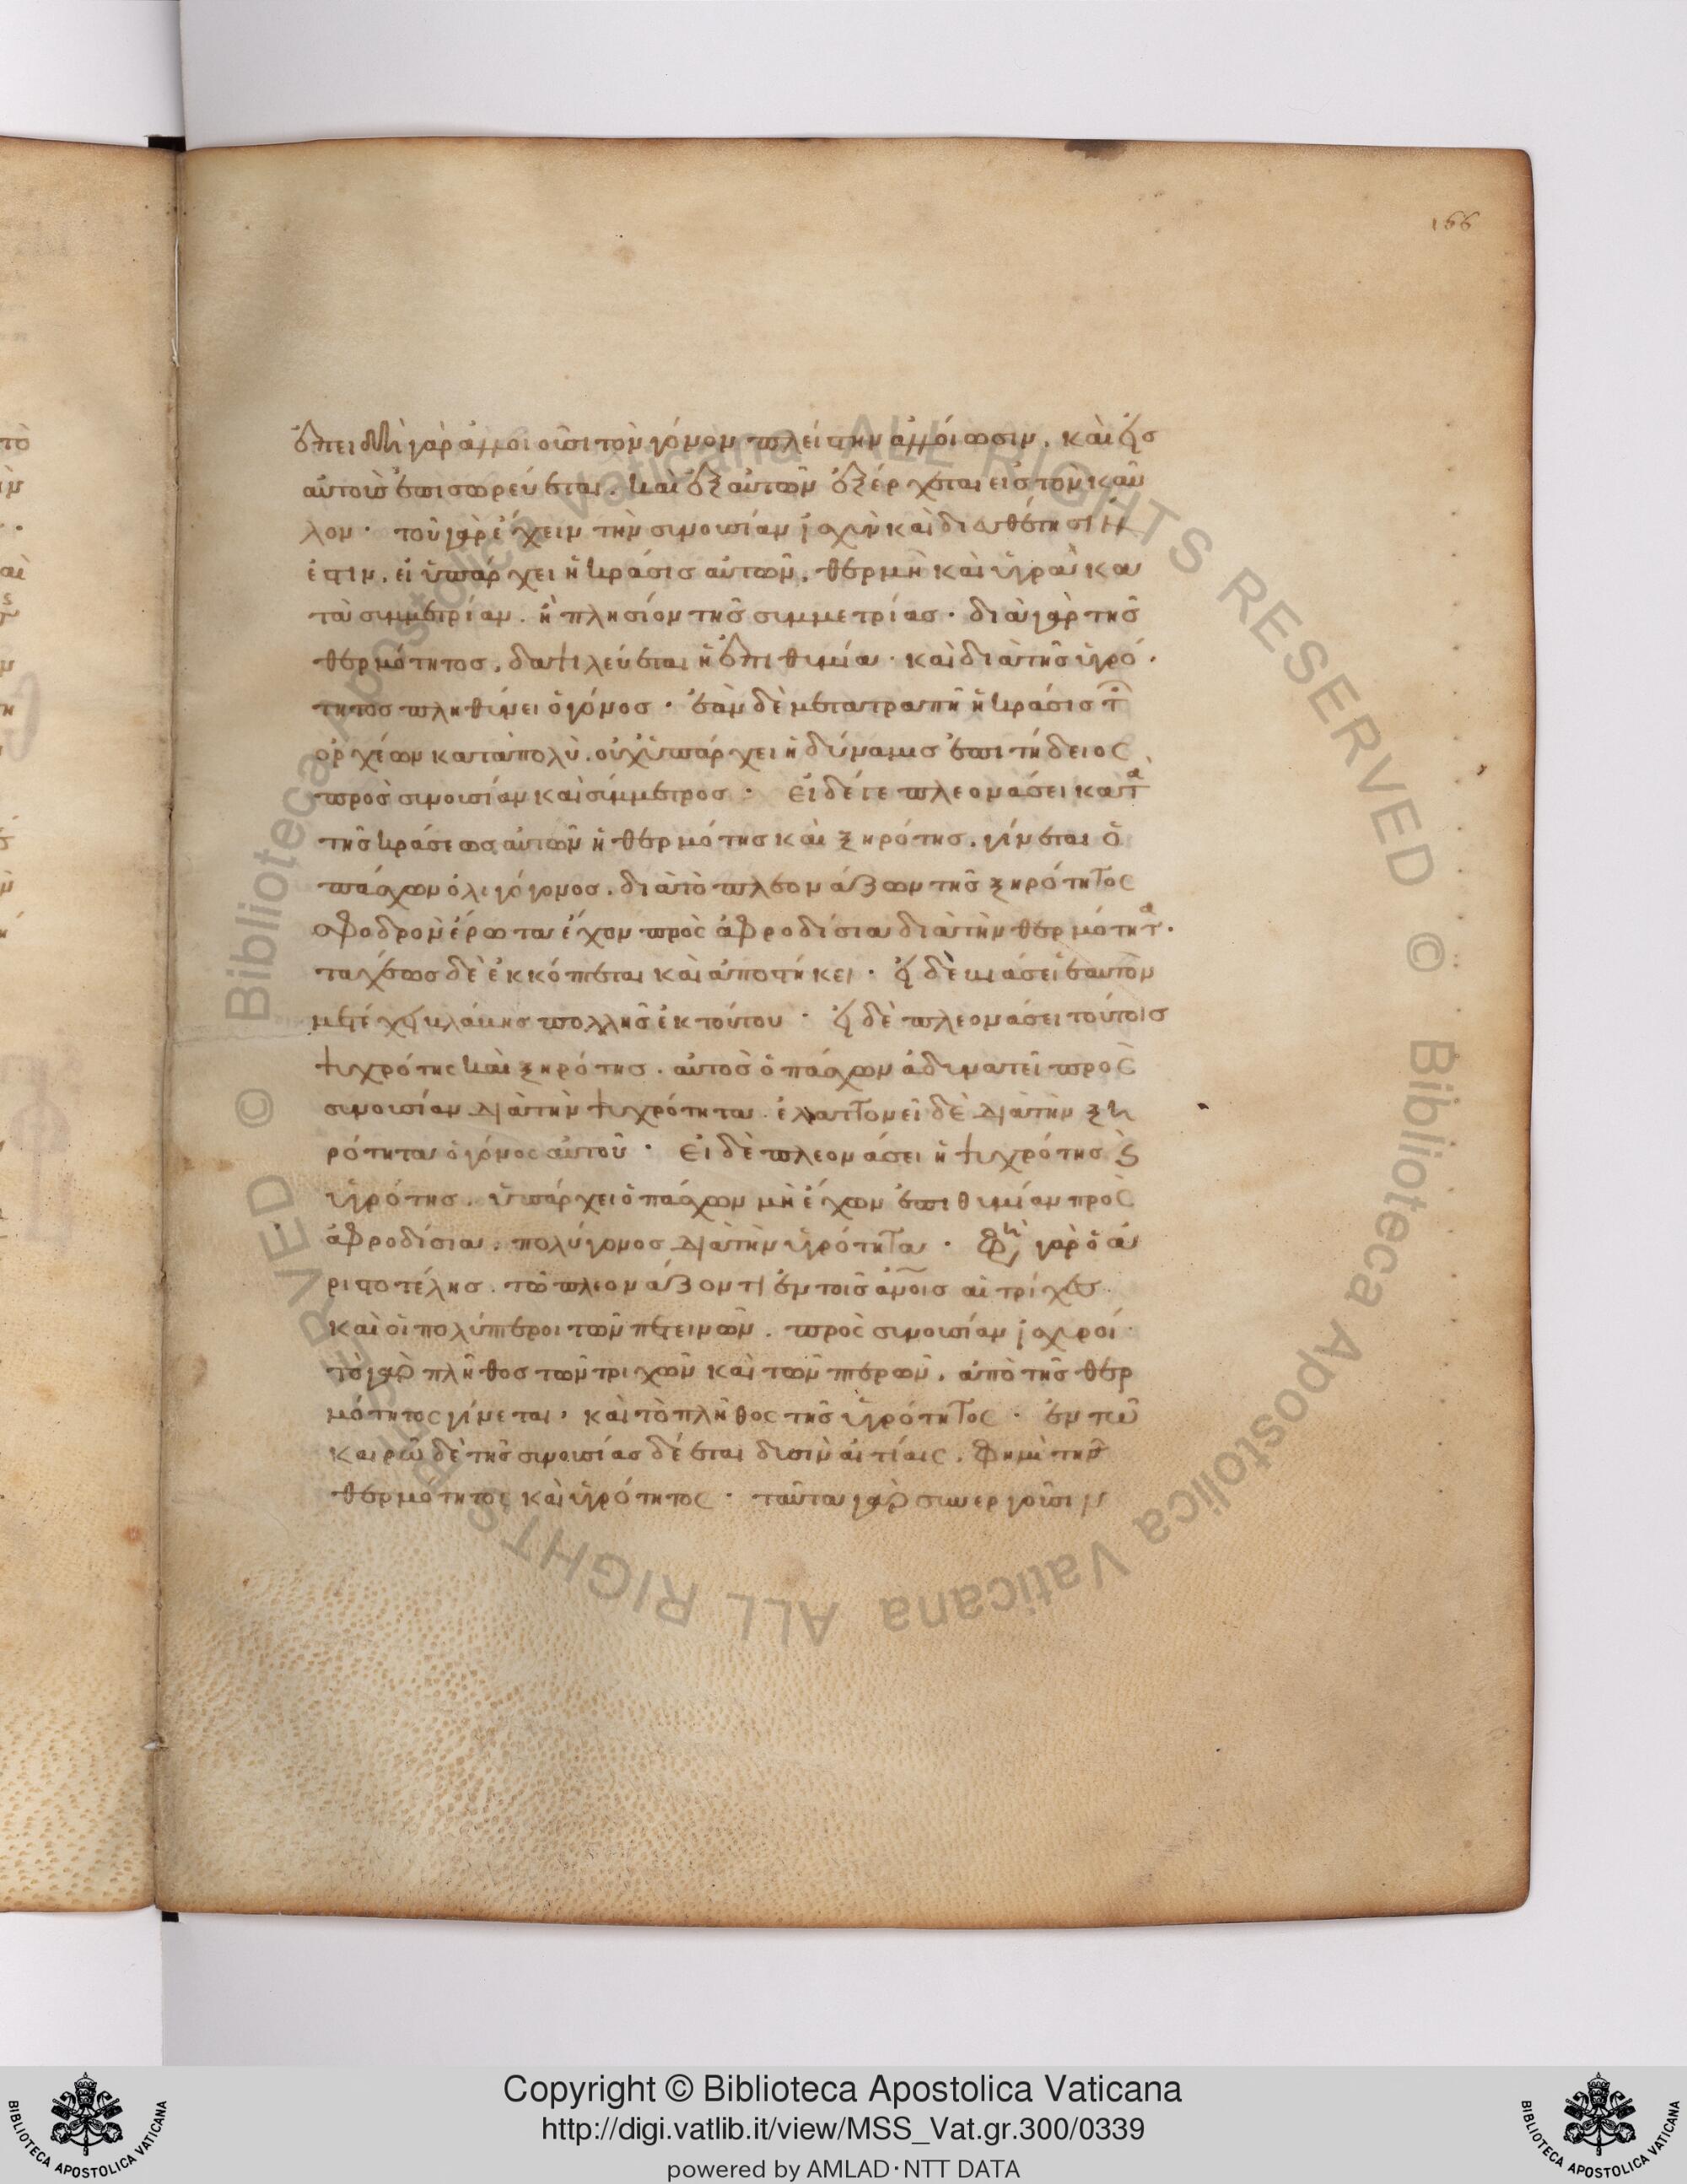 166
ἐπειδὴ γὰρ ἀλλοιοῦσι τὸν γόνον πλείστην ἀλλοίωσιν. καὶ εἰς
αὐτοὺς ἐπισωρεύεται. καὶ ἐξ αὐτῶν ἐξέρχεται εἰς τὸν καυ
λόν· τοῦ γὰρ ἔχειν τὴν συνουσίαν ἰσχὺν καὶ διαθέτησιν
ἐστιν. εἰ ὑπάρχει ἡ κράσις αὐτῶν. θερμὴ καὶ ὑγρὰ κα
τὰ συμμετρίαν. ἢ πλησίον τῆς συμμετρίας· διὰ γὰρ τῆς
θερμότητος. δαψιλεύεται ἡ ἐπιθυμία· καὶ διὰ τῆς ὑγρό
τητος πληθύνει ὁ γόνος· ἐὰν δὲ μετατραπῆ ἡ κράσις τῶν
ὀρχέων κατὰ πολὺ. οὐχ ὑπάρχει ἡ δύναμις ἐπιτήδειος
πρὸς συνουσίαν καὶ σύμμετρος· εἰ δέ γε πλεονάσει κατὰ
τῆς κράσεως αὐτῶν ἡ θερμότης καὶ ξηρότης. γίνεται ὁ
πάσχων ὀλιγόγονος. διὰ τὸ πλεονάζων τῆς ξηρότητος
σφοδρὸν ἔρωτα ἔχον πρὸς ἀφροδίσια διὰ τὴν θερμότητα·
ταχέως δὲ ἐκκόπτεται καὶ ἀποστήκει· εἰ δὲ βιάσει ἑαυτὸν
μετέχει βλάβης πολλῆς ἐκ τούτου· εἰ δὲ πλεονάσει τούτοις
ψυχρότης καὶ ξηρότης. αὐτὸς ὁ πάσχων ἀδυνατεῖ πρὸς
συνουσίαν διὰ τὴν ψυχρότητα. ἐλαττονεῖ δὲ διὰ τὴν ξη
ρότητα ὁ γόνος αὐτοῦ· εἰ δὲ πλεονάσει ἡ ψυχρότης καὶ
ὑγρότης. ὑπάρχει ὁ πάσχων μὴ ἔχων ἐπιθυμίαν πρὸς
ἀφροδίσια. πολύγονος διὰ τὴν ὑγρότητα· φησὶ γὰρ ὁ ἀ
ριστοτέλης. τὸ πλεονάζοντι ἐν τοῖς ἀνοις αἱ τρίχες
καὶ οἱ πολύπτεροι τῶν πετεινῶν. πρὸς συνουσίαν ἰσχυροί·
τὸ γὰρ πλῆθος τῶν τριχῶν καὶ τῶν πτερῶν. ἀπὸ τῆς θερ
μότητος γίνεται· καὶ τὸ πλῆθος τῆς ὑγρότητος· ἐν τῶ
καιρῶ δὲ τῆς συνουσίας δέεται δυσὶν αἰτίαις. φημὶ τῆς
θερμότητος καὶ ὑγρότητος· ταῦτα γὰρ συνεργοῦσιν
Copyright © Biblioteca Apostolica Vaticana
http://digi.vatlib.it/view/MSS_Vat.gr.300/0339
powered by AMLAD·NTT DATA